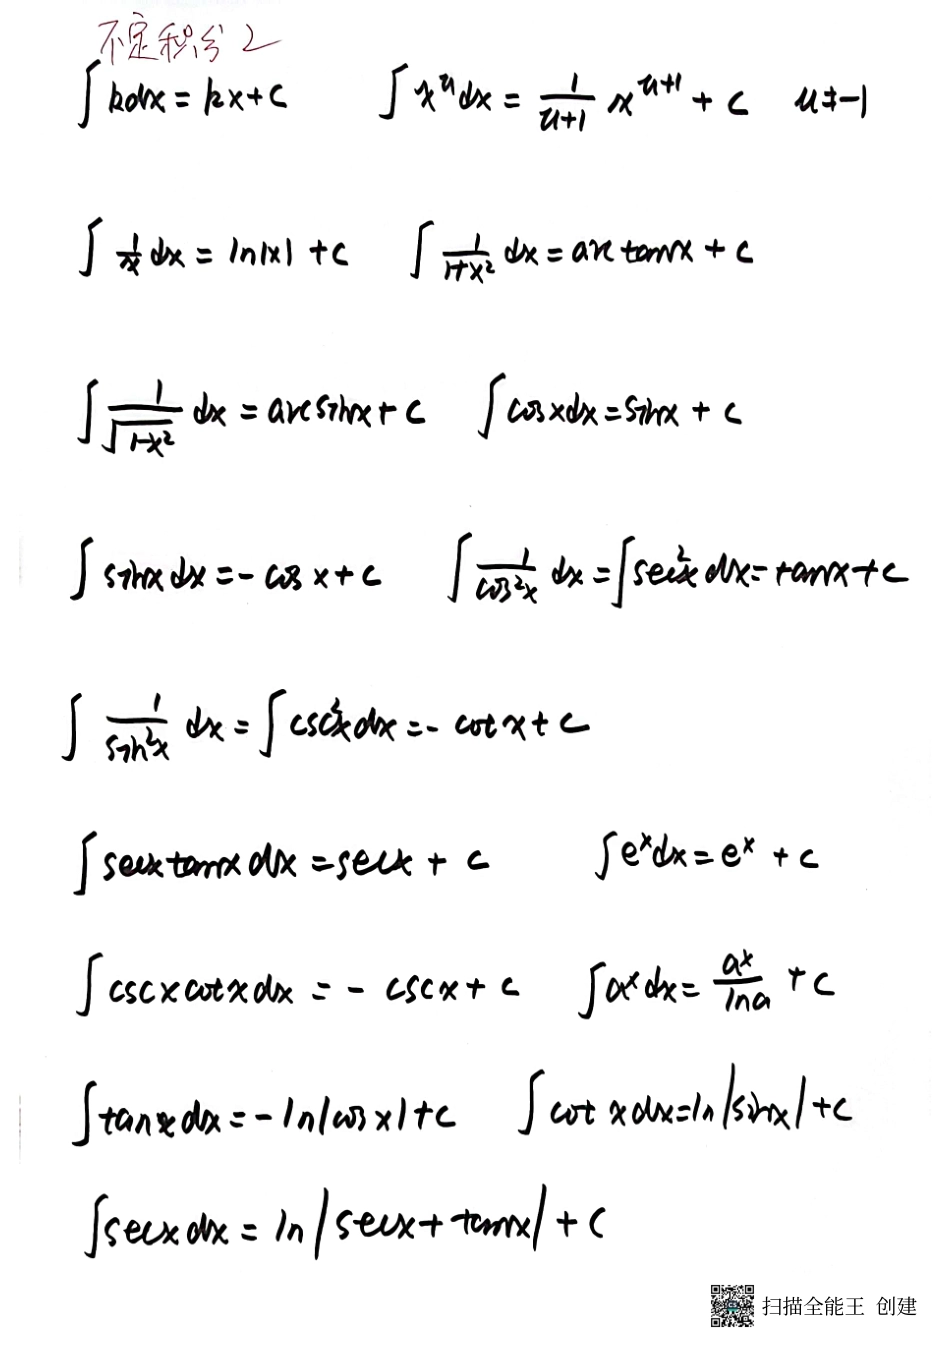 不定积分2
∫kdx = kx+c ∫x^u dx = 1/(u+1) x^(u+1) + c u≠-1
∫1/x dx = ln|x| + c ∫1/(1+x²) dx = arctanx + c
∫1/√(1-x²) dx = arcsinx + c ∫cosxdx = sinx + c
∫sinxdx = -cosx+c ∫1/cos²x dx = ∫sec²xdx = tanx+c
∫1/sin²x dx = ∫csc²xdx = -cotx+c
∫secxtanxdx = secx + c ∫e^x dx = e^x + c
∫cscxcotxdx = - cscx + c ∫a^x dx = a^x/lna + c
∫tanxdx = -ln|cosx|+c ∫cotxdx = ln|sinx|+c
∫secxdx = ln|secx+tanx| + c
扫描全能王 创建